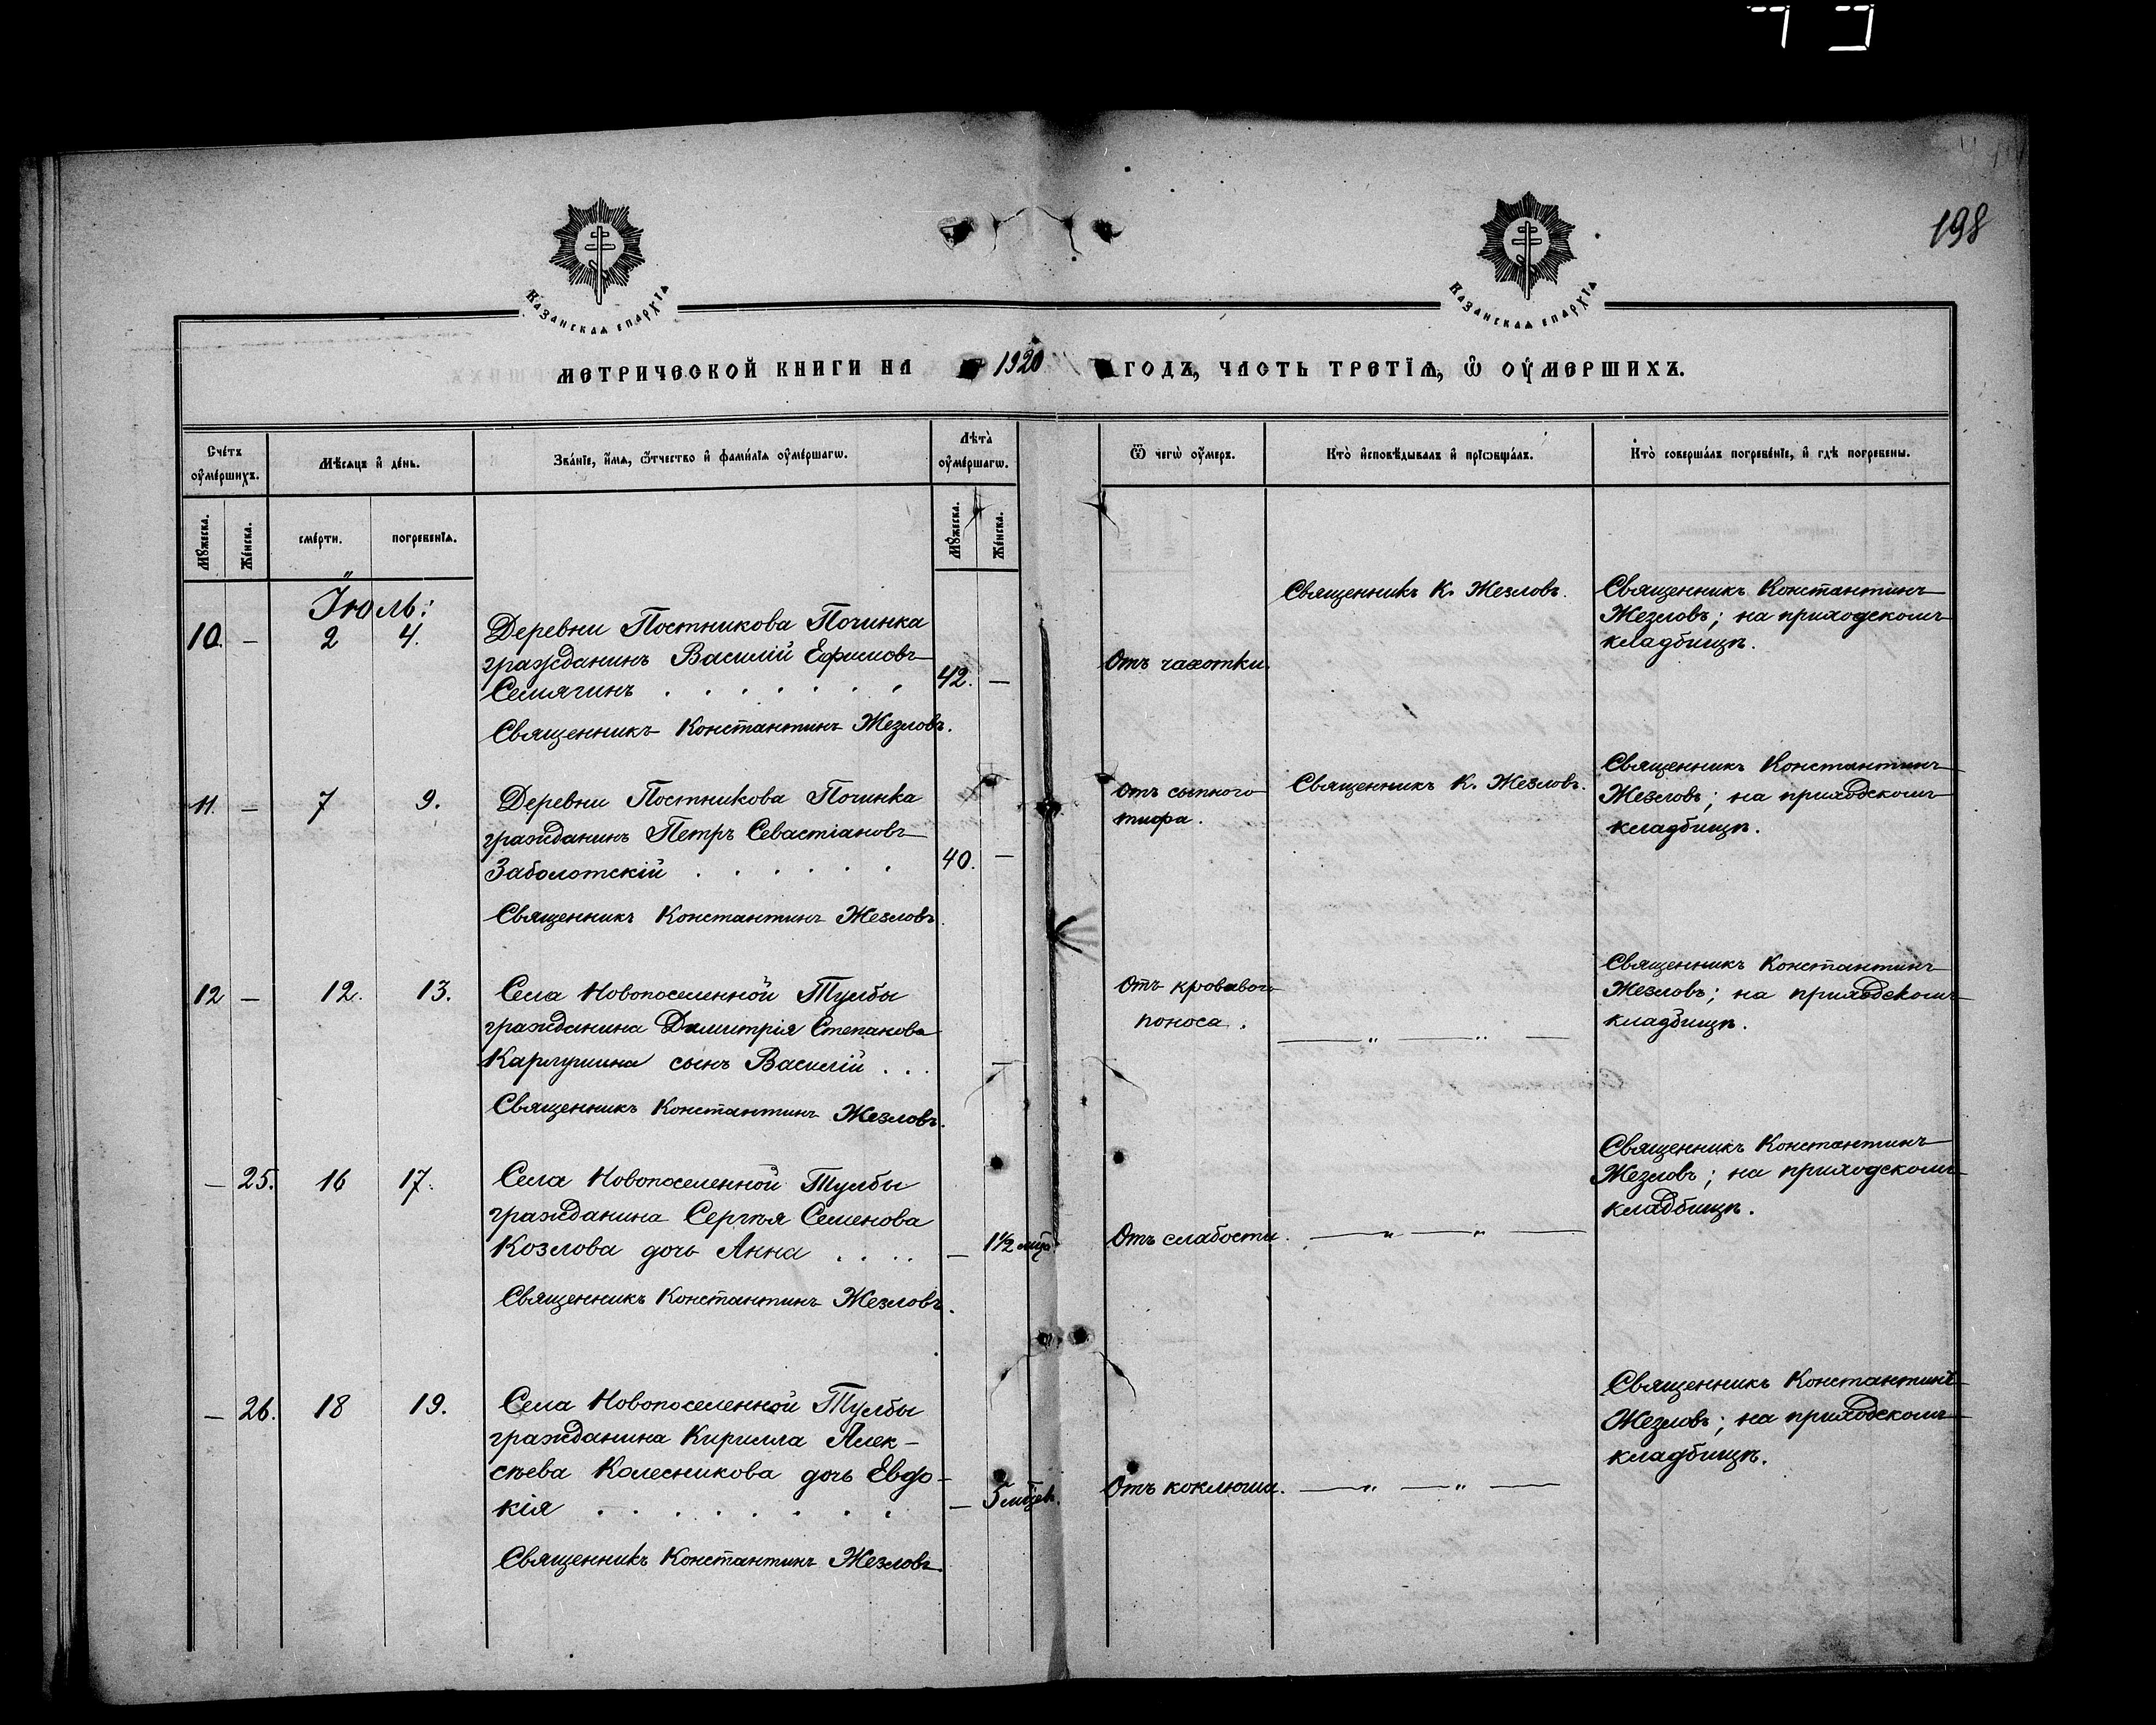 198
КАЗАНСКАѦ ЕПАРХІѦ
КАЗАНСКАѦ ЕПАРХІѦ
МЕТРИЧЕСКОЙ КНИГИ НА 1920 ГОДЪ, ЧАСТЬ ТРЕТІѦ, Ѡ ОУМЕРШИХЪ.
Сче́тъ оу҆ме́ршихъ.
Мѣ́сѧцъ и҆ де́нь.
Зва́нїе, и҆́мѧ, ѻ҆́тчество и҆ фамилїѧ оу҆ме́ршагѡ.
Лѣта̀ оу҆ме́ршагѡ.
Ѿ чегѡ̀ оу҆́меръ.
Кто̀ и҆сповѣ́дывалъ и҆ прїѡбща́лъ.
Кто̀ соверша́лъ погребе́нїе, и҆ гдѣ̀ погребены.
Мꙋ́жеска.
Же́нска.
сме́рти.
погребе́нїѧ.
Мꙋ́жеска.
Же́нска.
Іюль:
10. — 2 4. Деревни Постникова Починка
гражданинъ Василій Ефимовъ
Семягинъ . . . . . . . 42. —
Священникъ Константинъ Жезловъ.
Отъ чахотки.
Священникъ К. Жезловъ.
Священникъ Константинъ
Жезловъ; на приходскомъ
кладбищѣ.
11. — 7 9. Деревни Постникова Починка
гражданинъ Петръ Севастіановъ
Заболотскій . . . . . . 40. —
Священникъ Константинъ Жезловъ.
Отъ сыпного
тифа.
Священникъ К. Жезловъ.
Священникъ Константинъ
Жезловъ; на приходскомъ
кладбищѣ.
12 — 12. 13. Села Новопоселенной Тулбы
гражданина Димитрія Степанова
Карпушина сынъ Василій . . . —
Священникъ Константинъ Жезловъ.
Отъ кроваваго
поноса.
— " — " —
Священникъ Константинъ
Жезловъ; на приходскомъ
кладбищѣ.
— 25. 16 17. Села Новопоселенной Тулбы
гражданина Сергѣя Семенова
Козлова дочь Анна . . . . — 1½ мѣс.
Священникъ Константинъ Жезловъ.
Отъ слабости.
— " — " —
Священникъ Константинъ
Жезловъ; на приходскомъ
кладбищѣ.
— 26. 18 19. Села Новопоселенной Тулбы
гражданина Кирилла Алек-
сѣева Колесникова дочь Евдо-
кія . . . . . . . . — 5 мѣсцев.
Священникъ Константинъ Жезловъ.
Отъ коклюша.
— " — " —
Священникъ Константинъ
Жезловъ; на приходскомъ
кладбищѣ.